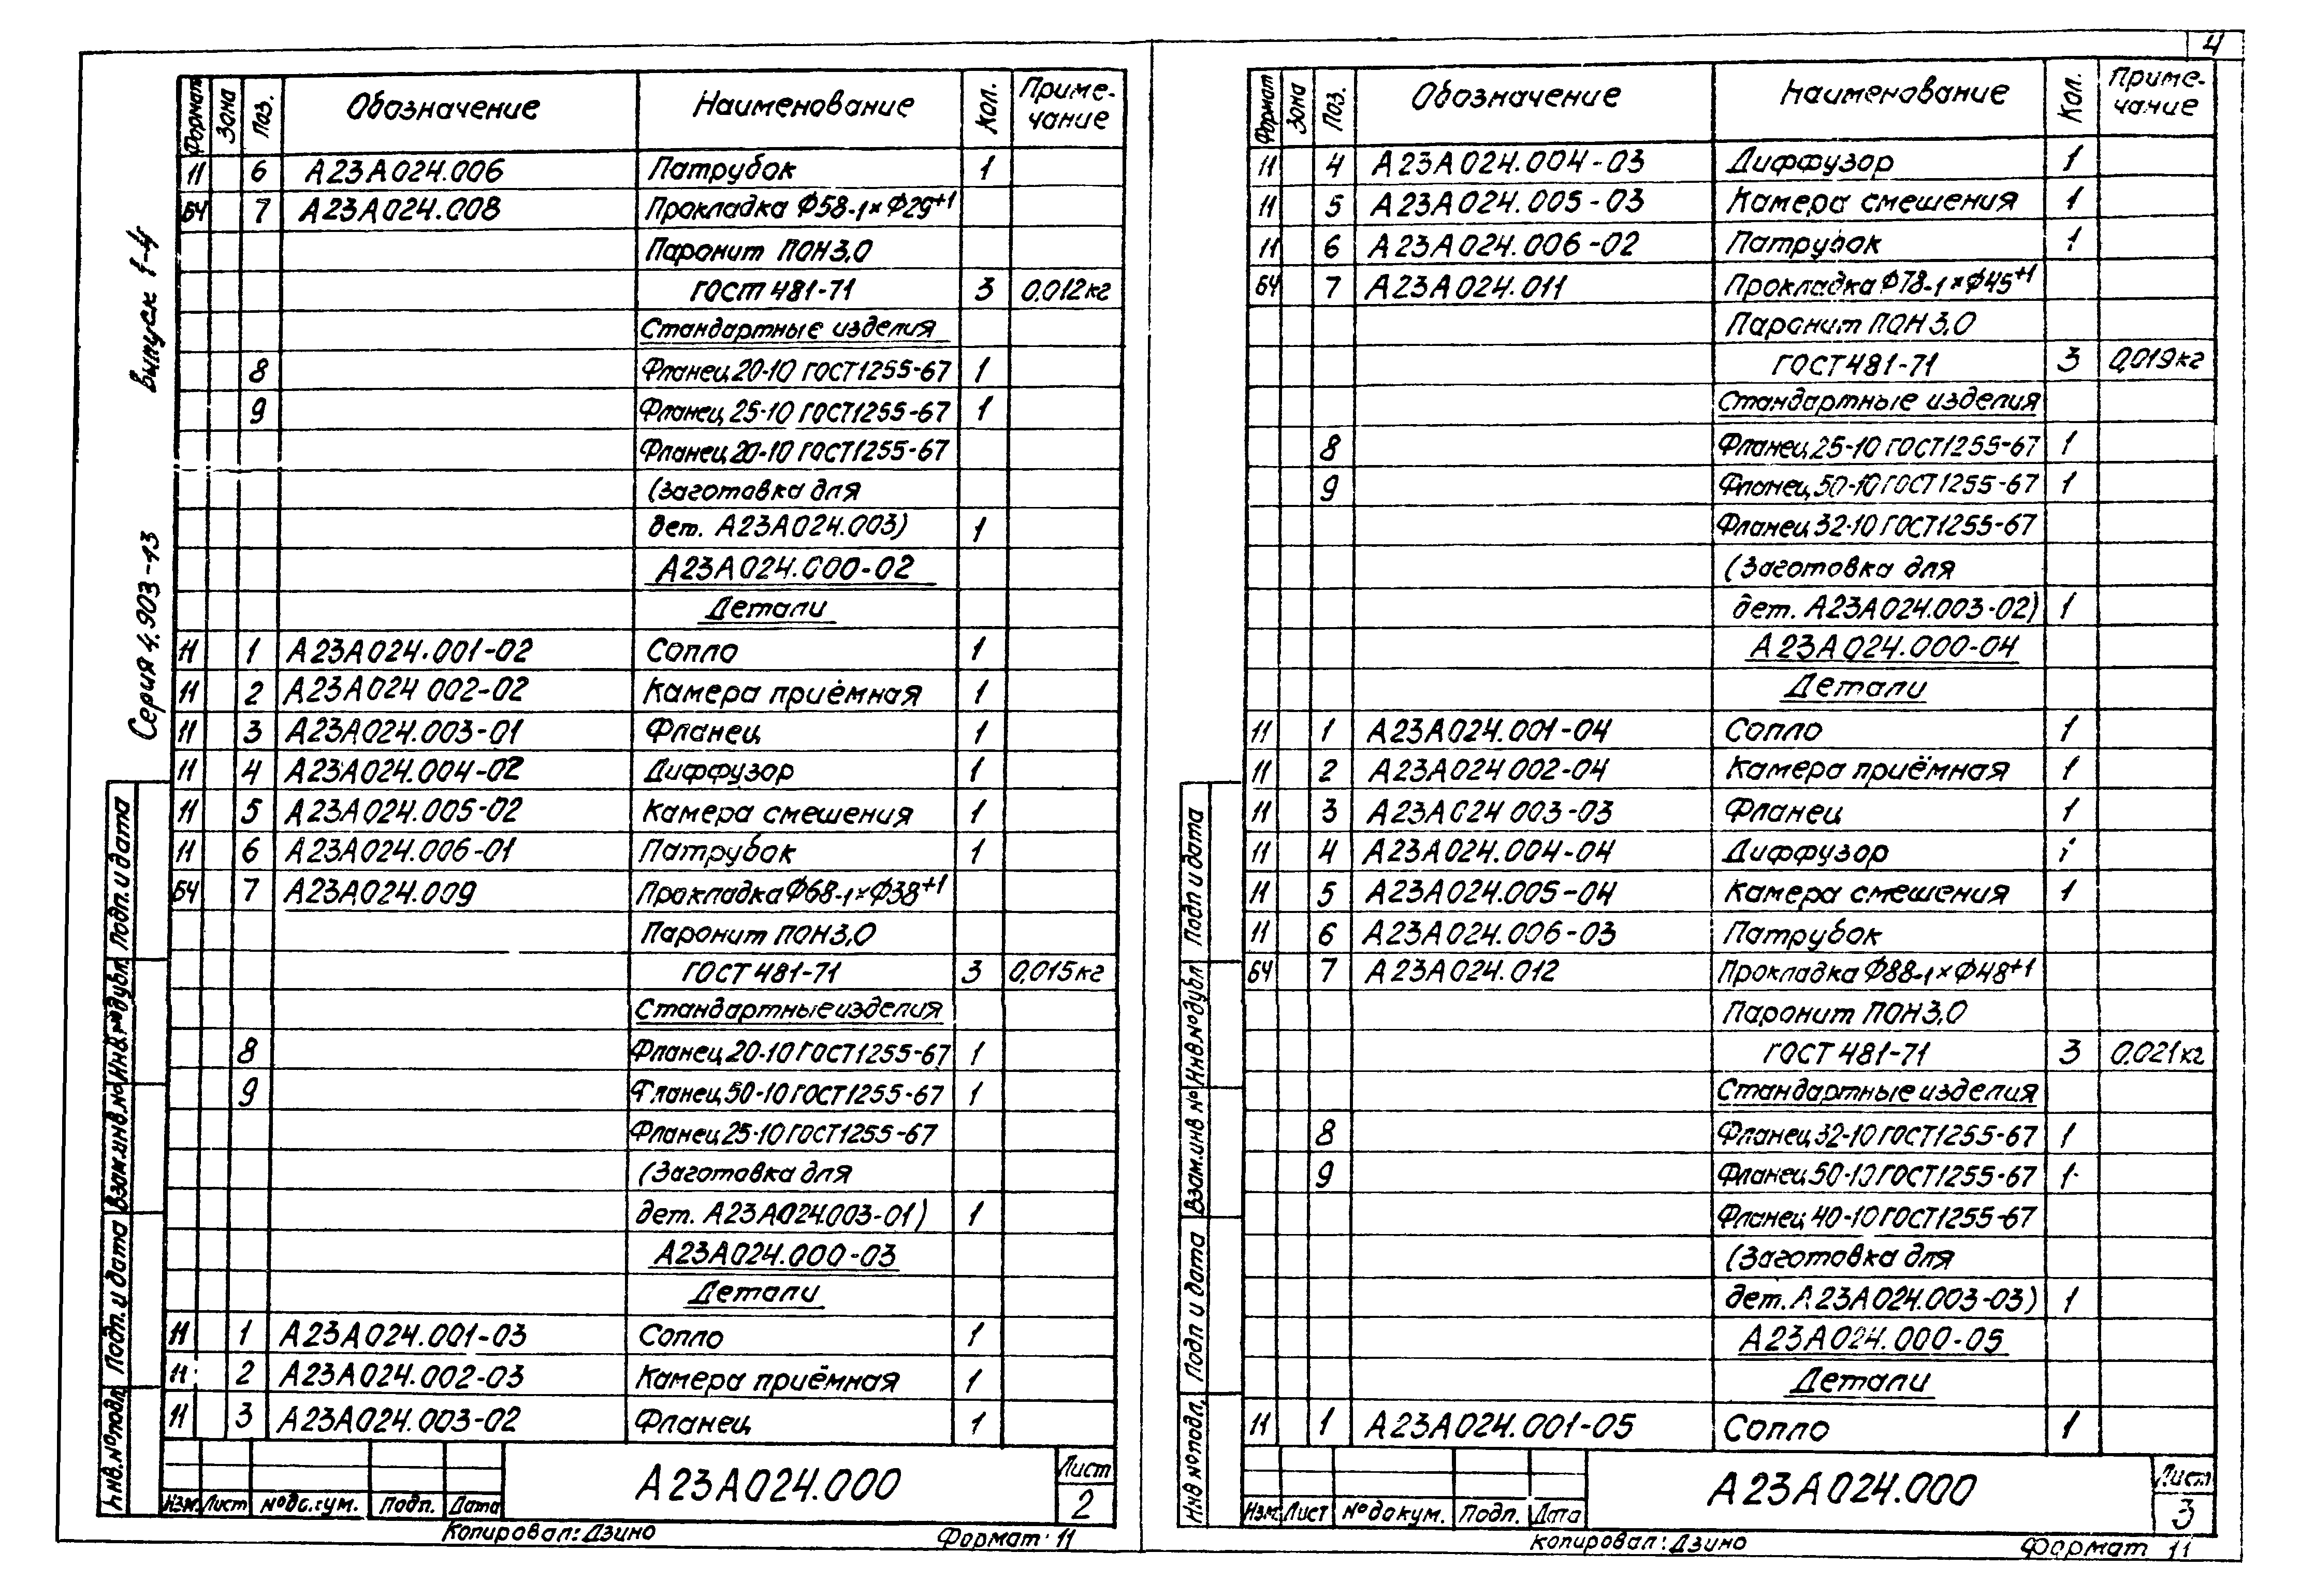 4
Серия 4.903-13 выпуск 1-4
Формат Зона Поз. Обозначение Наименование Кол. Приме-
чание
11 6 А23А024.006 Патрубок 1
БЧ 7 А23А024.008 Прокладка Ф58-1×Ф29+1
Паронит ПОН3,0
ГОСТ 481-71 3 0.012кг
Стандартные изделия
8 Фланец 20-10 ГОСТ1255-67 1
9 Фланец 25-10 ГОСТ1255-67 1
Фланец 20-10 ГОСТ1255-67
(Заготовка для
дет. А23А024.003) 1
А23А024.000-02
Детали
11 1 А23А024.001-02 Сопло 1
11 2 А23А024 002-02 Камера приёмная 1
11 3 А23А024.003-01 Фланец 1
11 4 А23А024.004-02 Диффузор 1
11 5 А23А024.005-02 Камера смешения 1
11 6 А23А024.006-01 Патрубок 1
БЧ 7 А23А024.009 Прокладка Ф68-1×Ф38+1
Паронит ПОН3,0
ГОСТ 481-71 3 0,015кг
Стандартные изделия
8 Фланец 20-10 ГОСТ1255-67 1
9 Фланец 50-10 ГОСТ1255-67 1
Фланец 25-10 ГОСТ1255-67
(Заготовка для
дет. А23А024.003-01) 1
А23А024.000-03
Детали
11 1 А23А024.001-03 Сопло 1
11 2 А23А024.002-03 Камера приёмная 1
11 3 А23А024.003-02 Фланец 1
Инв.№подл. Подп. и дата Взам.инв.№ Инв.№дубл. Подп. и дата
Изм. Лист №докум. Подп. Дата
А23А024.000
Лист
2
Копировал: Дзино Формат 11
Формат Зона Поз. Обозначение Наименование Кол. Приме-
чание
11 4 А23А024.004-03 Диффузор 1
11 5 А23А024.005-03 Камера смешения 1
11 6 А23А024.006-02 Патрубок 1
БЧ 7 А23А024.011 Прокладка Ф78-1×Ф45+1
Паронит ПОН3,0
ГОСТ481-71 3 0,019кг
Стандартные изделия
8 Фланец 25-10 ГОСТ1255-67 1
9 Фланец 50-10 ГОСТ1255-67 1
Фланец 32-10 ГОСТ1255-67
(Заготовка для
дет. А23А024.003-02) 1
А23А024.000-04
Детали
11 1 А23А024.001-04 Сопло 1
11 2 А23А024 002-04 Камера приёмная 1
11 3 А23А024 003-03 Фланец 1
11 4 А23А024.004-04 Диффузор 1
11 5 А23А024.005-04 Камера смешения 1
11 6 А23А024.006-03 Патрубок
БЧ 7 А23А024.012 Прокладка Ф88-1×Ф48+1
Паронит ПОН3,0
ГОСТ 481-71 3 0.021кг
Стандартные изделия
8 Фланец 32-10 ГОСТ1255-67 1
9 Фланец 50-10 ГОСТ1255-67 1
Фланец 40-10 ГОСТ1255-67
(Заготовка для
дет. А23А024.003-03) 1
А23А024.000-05
Детали
11 1 А23А024.001-05 Сопло 1
Инв №подл. Подп и дата Взам.инв № Инв.№дубл Подп и дата
Изм. Лист №докум. Подп. Дата
А23А024.000
Лист
3
Копировал: Дзино Формат 11